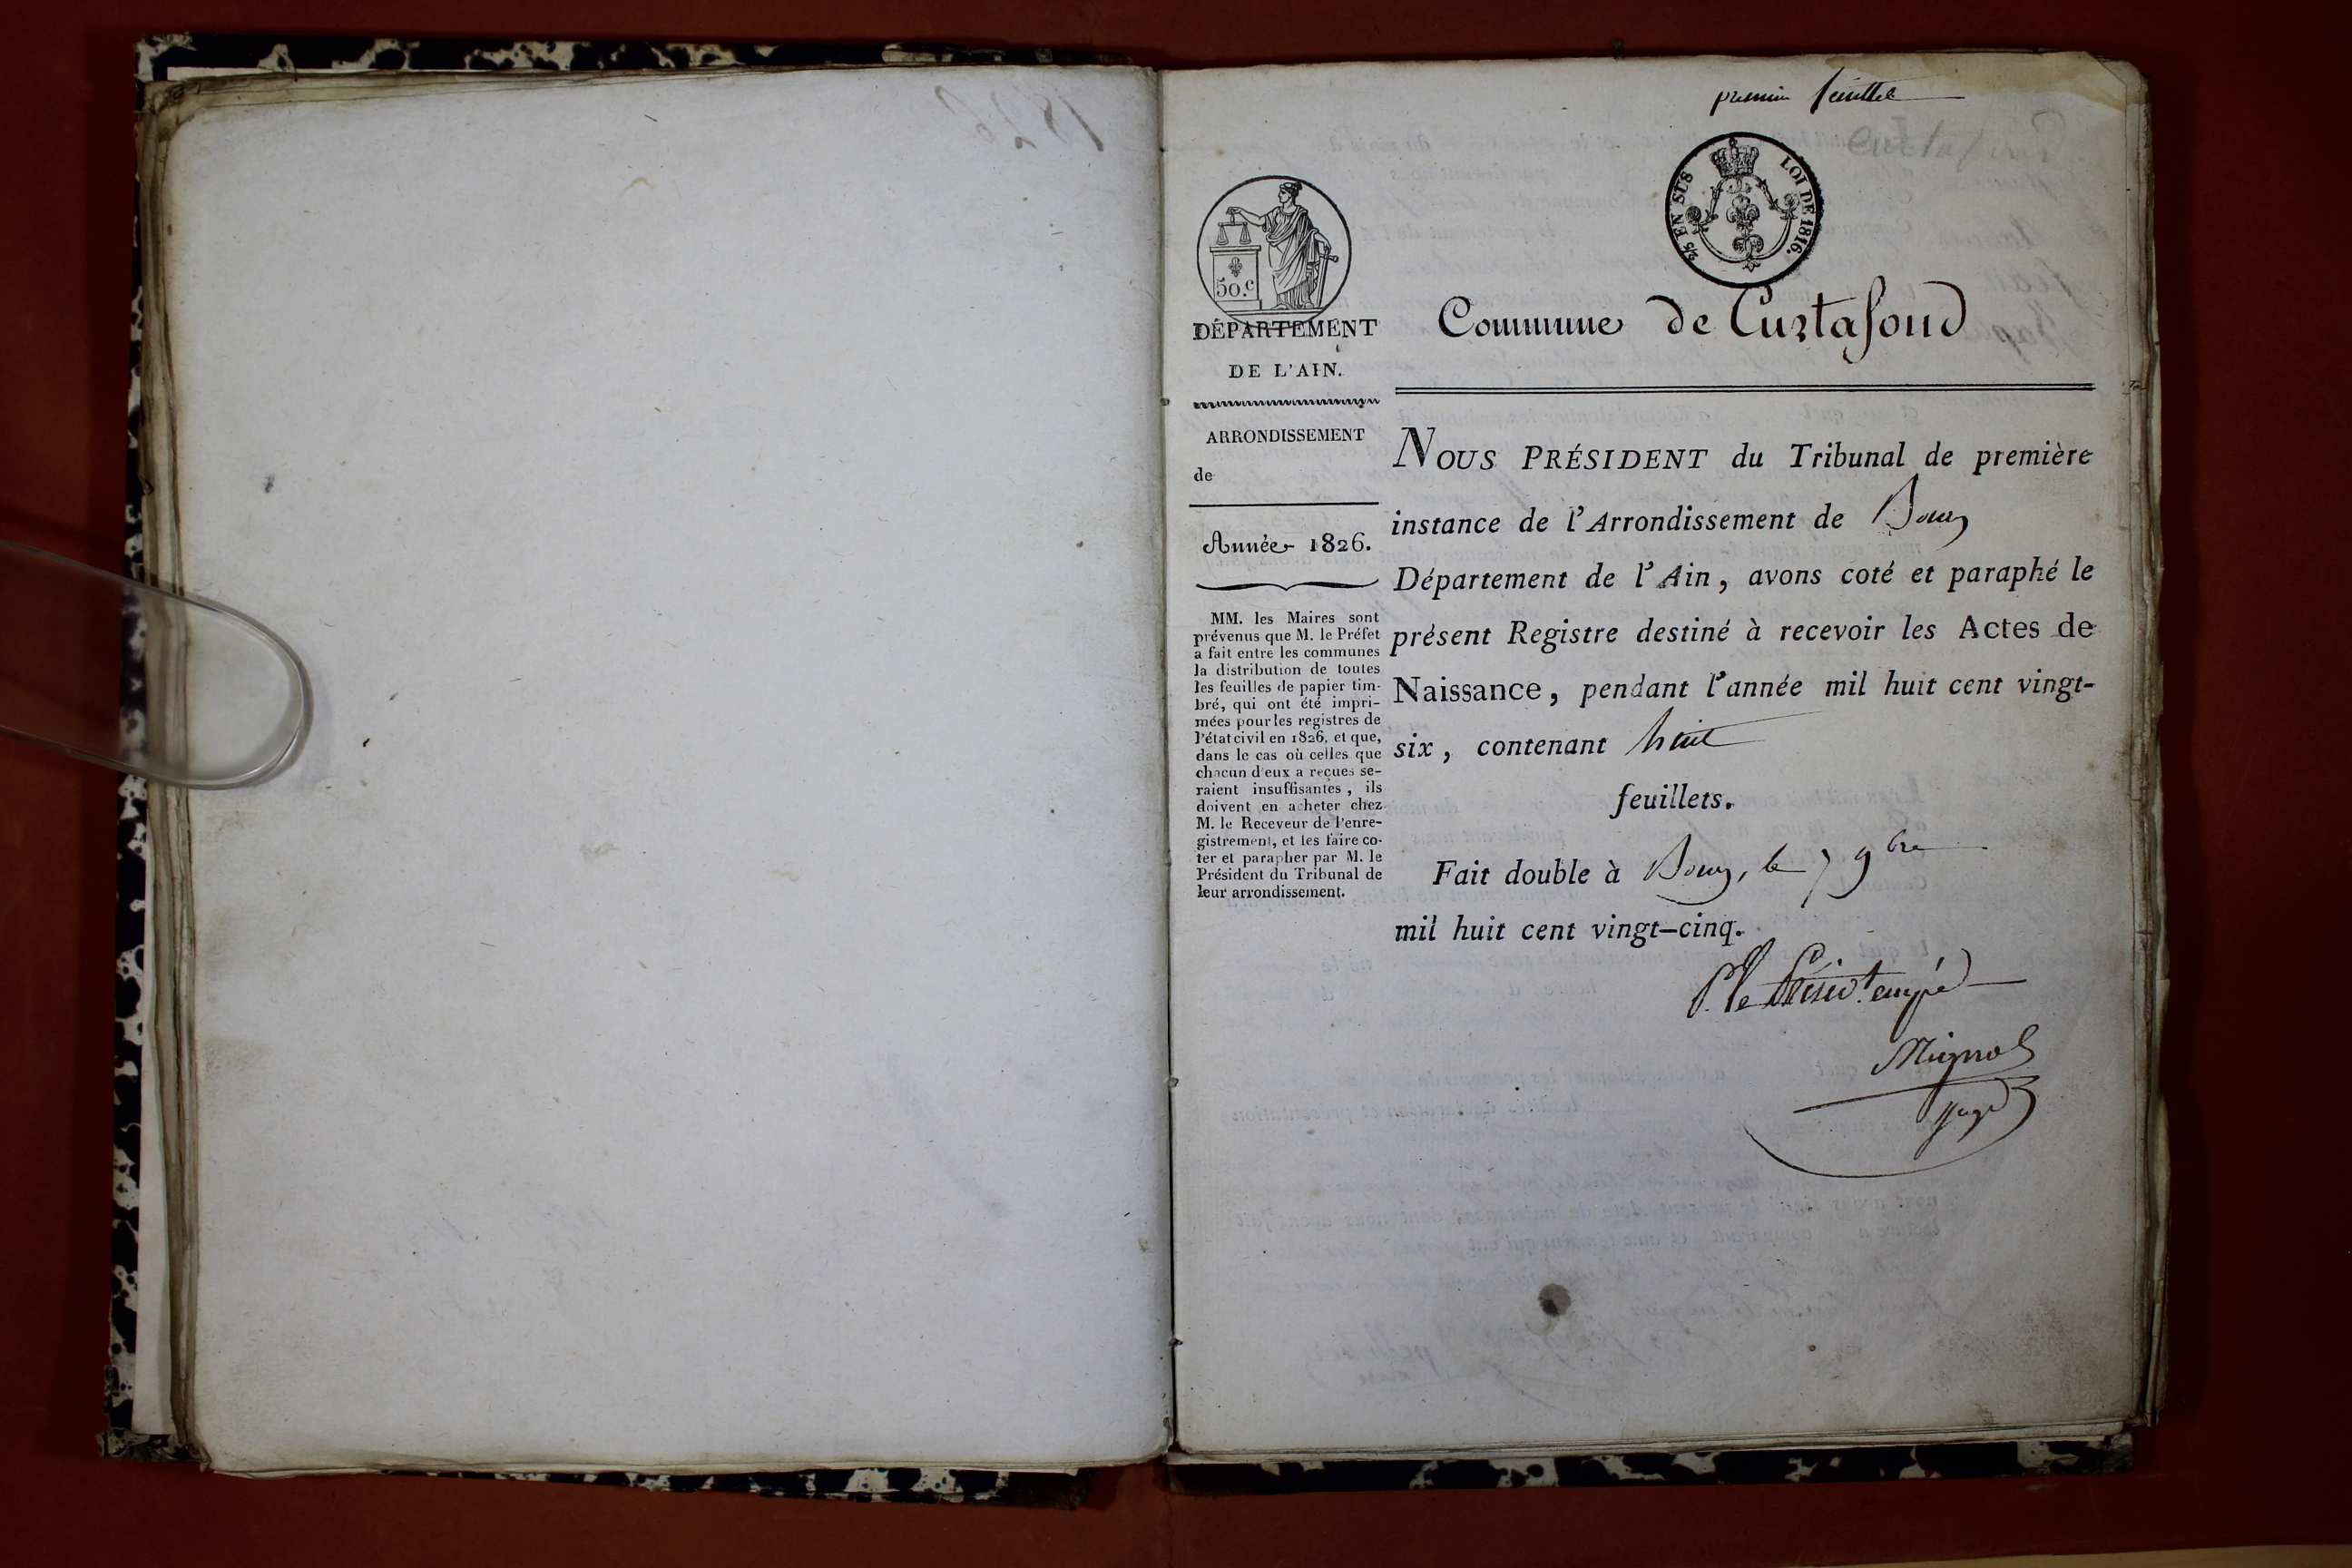 premier feuillet
2/5 EN SUS
LOI DE 1816.
50.c
DÉPARTEMENT
DE L'AIN.
ARRONDISSEMENT
de
Année 1826.
MM. les Maires sont
prévenus que M. le Préfet
a fait entre les communes
la distribution de toutes
les feuilles de papier tim-
bré, qui ont été impri-
mées pour les registres de
l'état civil en 1826, et que,
dans le cas où celles que
chacun d'eux a reçues se-
raient insuffisantes, ils
doivent en acheter chez
M. le Receveur de l'enre-
gistrement, et les faire co-
ter et parapher par M. le
Président du Tribunal de
leur arrondissement.
Commune de Curtafond
NOUS PRÉSIDENT du Tribunal de première
instance de l'Arrondissement de Bourg
Département de l'Ain, avons coté et paraphé le
présent Registre destiné à recevoir les Actes de
Naissance, pendant l'année mil huit cent vingt-
six, contenant huit
feuillets.
Fait double à Bourg, le 7 9bre
mil huit cent vingt-cinq.
P. le Présidt. empé
Mignot
Juge